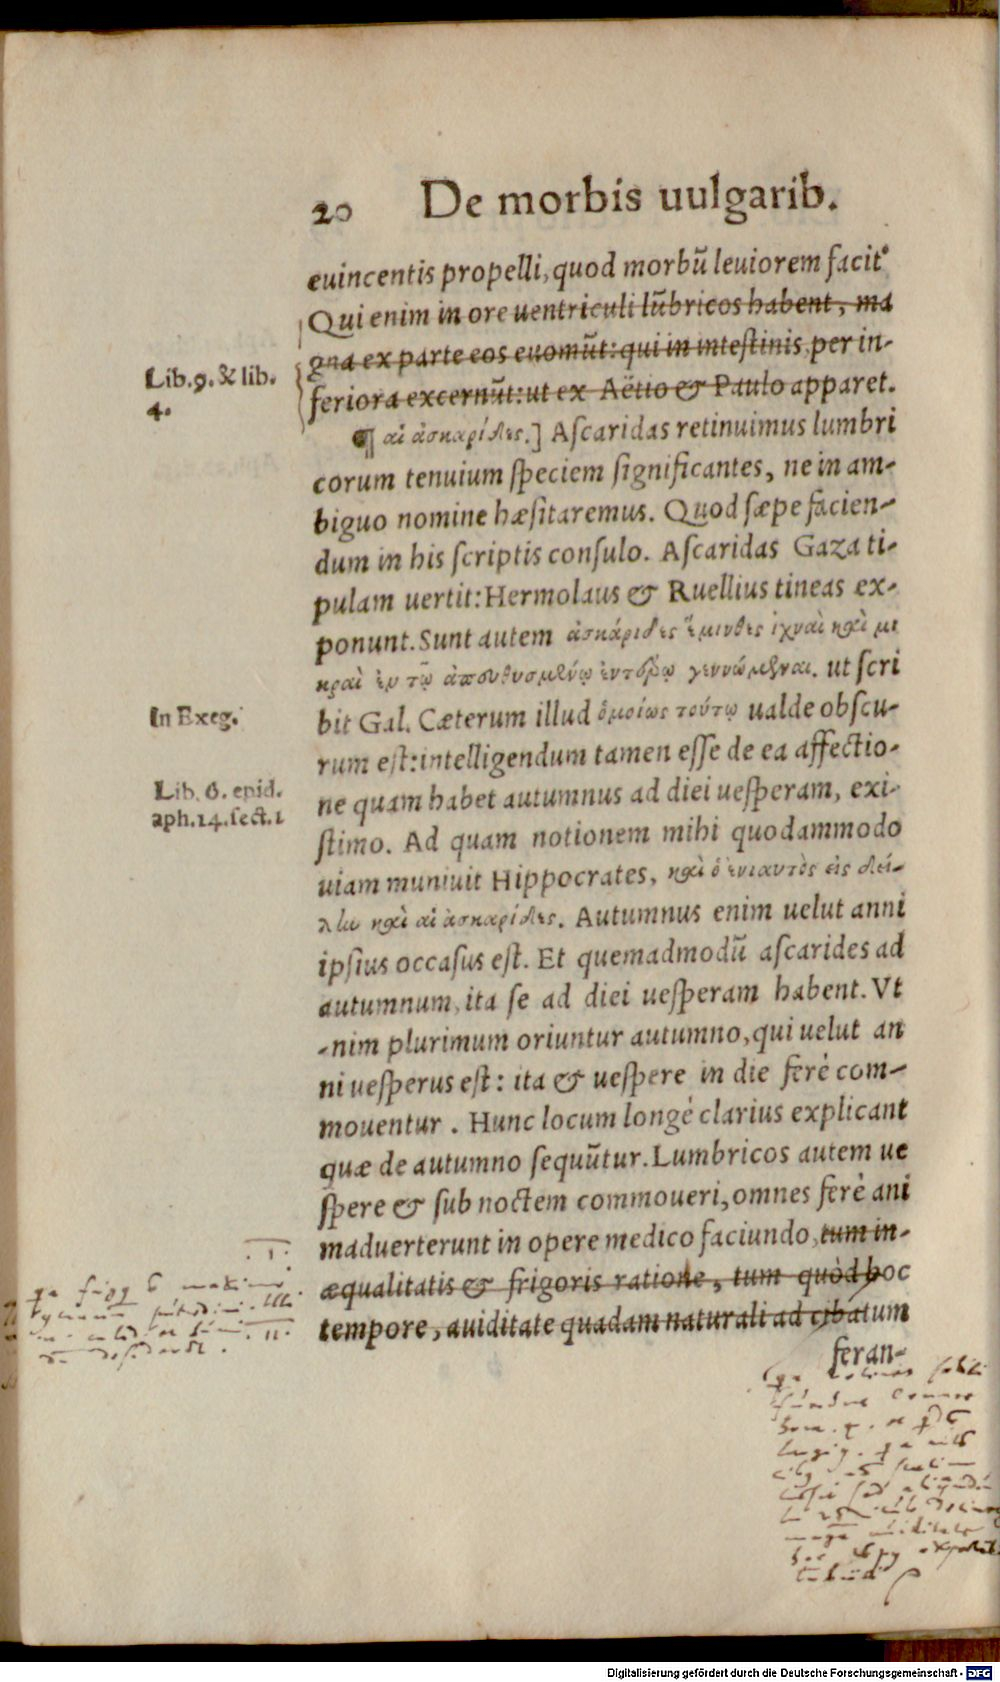 20 De morbis uulgarib.
euincentis propelli, quod morbũ leuiorem facit.
Qui enim in ore uentriculi lũbricos habent, ma
gna ex parte eos euomũt: qui in intestinis, per in-
Lib. 9. & lib.
4.
feriora excernũt: ut ex Aëtio & Paulo apparet.
¶ αἱ ἀσκαρίδες.] Ascaridas retinuimus lumbri
corum tenuium speciem significantes, ne in am-
biguo nomine hæsitaremus. Quod sæpe facien-
dum in his scriptis consulo. Ascaridas Gaza ti-
pulam uertit: Hermolaus & Ruellius tineas ex-
ponunt. Sunt autem ἀσκάριδες ἕμινθες ἰχναὶ καὶ μι
κραὶ ἐν τῷ ἀπευθυσμένῳ ἐντέρῳ γεννώμεναι. ut scri
In Exeg.
bit Gal. Cæterum illud ὁμοίως τούτῳ ualde obscu-
rum est: intelligendum tamen esse de ea affectio-
Lib. 6. epid.
aph. 14. sect. 1
ne quam habet autumnus ad diei uesperam, exi-
stimo. Ad quam notionem mihi quodammodo
uiam muniuit Hippocrates, καὶ ὁ ἐνιαυτὸς εἰς δεί-
λην καὶ αἱ ἀσκαρίδες. Autumnus enim uelut anni
ipsius occasus est. Et quemadmodũ ascarides ad
autumnum, ita se ad diei uesperam habent. Vt
-nim plurimum oriuntur autumno, qui uelut an
ni uesperus est: ita & uespere in die ferè com-
mouentur. Hunc locum longé clarius explicant
quæ de autumno sequũtur. Lumbricos autem ue
spere & sub noctem commoueri, omnes ferè ani
maduerterunt in opere medico faciundo, tum in-
æqualitatis & frigoris ratione, tum quòd hoc
tempore, auiditate quadam naturali ad cibatum
feran-
.I.
.III.
.II.
Digitalisierung gefördert durch die Deutsche Forschungsgemeinschaft - DFG